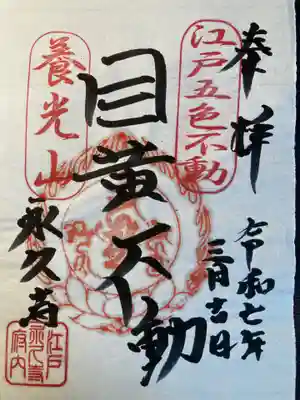 奉拝
江戸五色不動
令和七年
三月吉日
目黄不動
養光山
永久寺
江戸
府内
永久寺